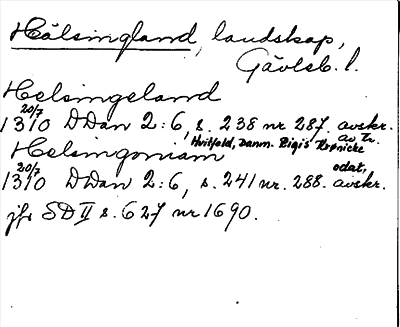 Hälsingland, landskap,
Gävleb. l.
Helsingeland
1310 20/7 DDan 2:6, s. 238 nr 287. avskr.
av tr.
Hvitfeld, Danm. Rigis Krønicke
Helsingoniam
odat.
1310 20/7 DDan 2:6, s. 241 nr. 288. avskr.
jfr SD II s. 627 nr 1690.